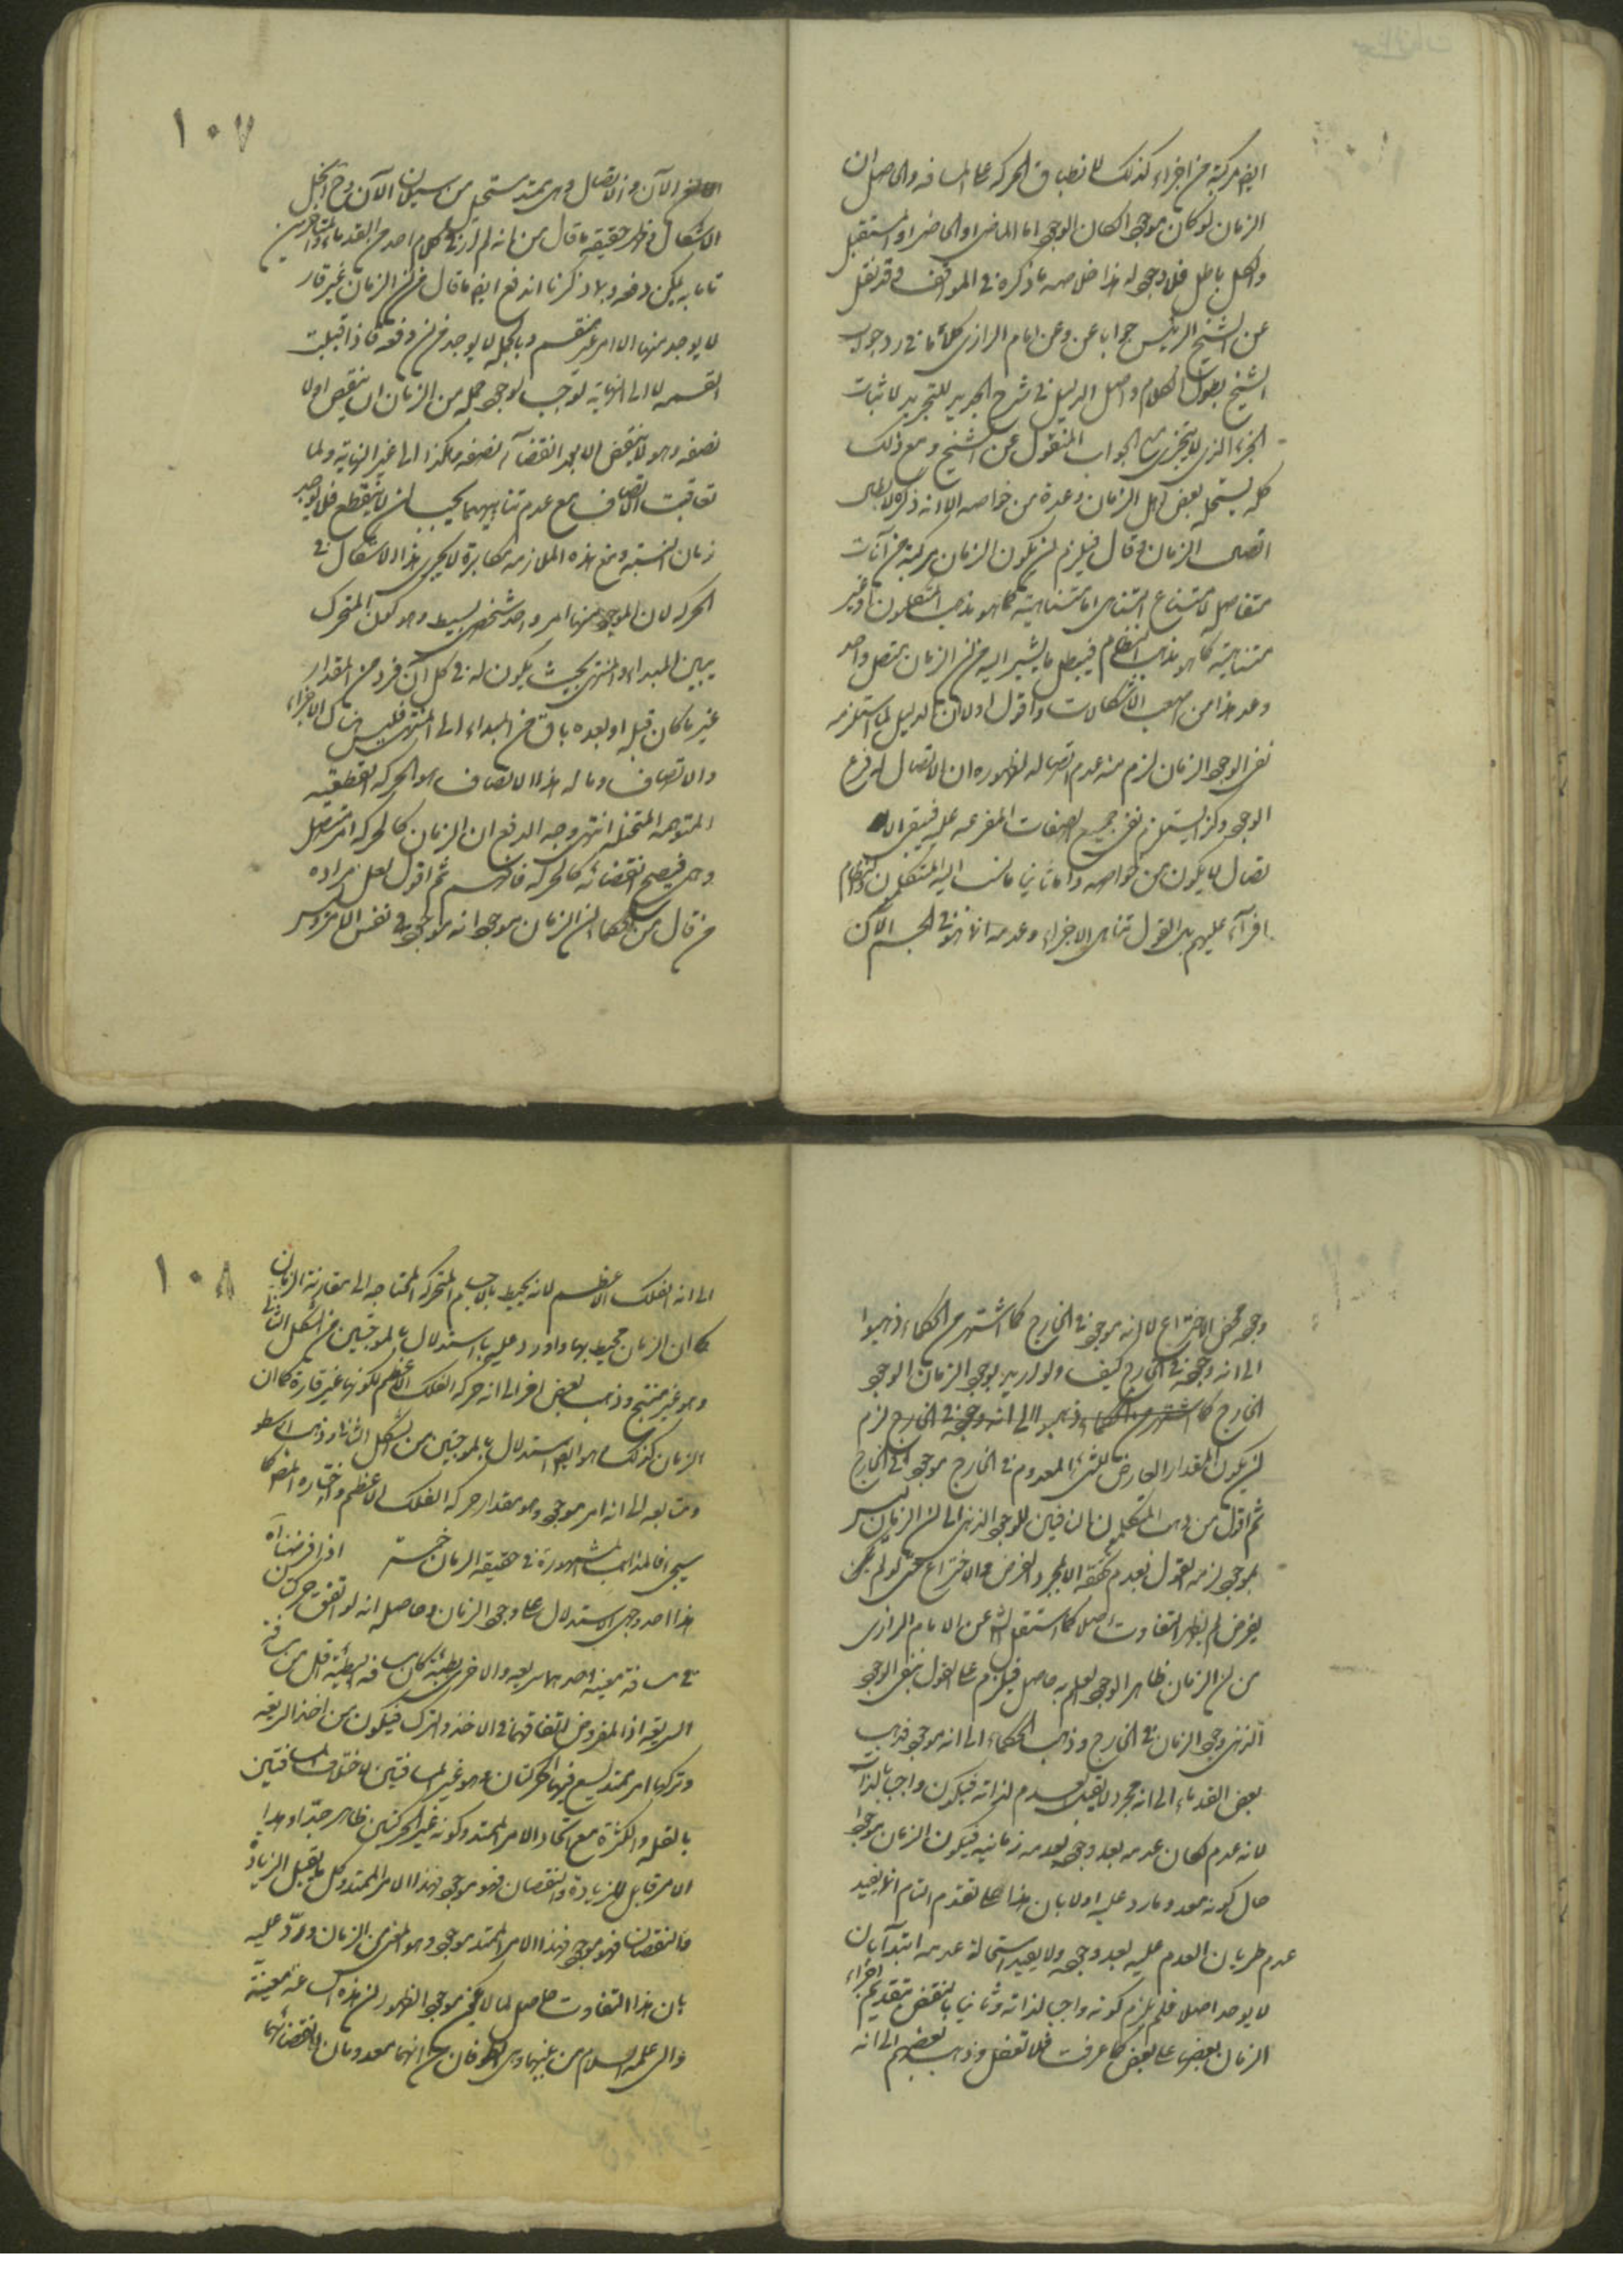 ايضا مركبة من اجزاء كذلك لانطباق الحركة على المسافة والحاصل ان
الزمان لو كان موجودا لكان الموجود اما الماضى او الحاضر او المستقبل
والكل باطل فلا وجود له هذا خلاصة ما ذكره فى المواقف وقد نقل
عن الشيخ الرئيس جوابا عن وعن امام الرازى كلاما فى رد جواب
الشيخ بطول الكلام واصل الدليل فى شرح الجديد للتجريد لاثبات
الجزء الذى لا يتجزى مع الجواب المنقول عن الشيخ ومع ذلك
كله بعض اهل الزمان وعده من خواصه الا انه ذكره لابطال
اتصال الزمان وقال فيلزم ان يكون الزمان مركبة من آنات
متفاصل لامتناع اما متناهية كما هو مذهب المتكلمون او غير
متناهية كما هو مذهب النظام فيبطل ما يشير اليه من ان الزمان متصل واحد
وعد هذا من اصعب الاشكالات واقول اولا ان الدليل لما استلزم
نفى الوجود الزمان لزم منه عدم اتصاله لظهوره ان الاتصال فرع
الوجود وكذا يستلزم نفى جميع الصفات المفرعة عليه فنفى الا
تصال لا يكون من خواصه واما ثانيا ما نسب اليه المتكلمون والنظام
افتراء عليهم بل القول بتناهى الاجزاء وعدمه انما هو فى الجسم الآن
١٠٧
الآن والاتصال وهى يمتد مستحيل من سيلان الآن وح انحل
الاشكال وظهر حقيقة ما قال من انه لم ار فى كلام احد من القدماء والمتأخرين
ما به يمكن دفعه وبما ذكرنا اندفع ايضا ما قال من ان الزمان غير قار
لا يوجد منها الا امر غير منقسم وبالجملة لا يوجد من دفعة فاذا قبلت
القسمة لا الى النهاية لوجب لوجود جملة من الزمان ان ينقضى اولا
نصفه وهو لا ينقضى الا بعد انقضاء نصفه وهكذا الى غير النهاية ولما
تعاقبت الانصاف مع عدم تناهيهما يجب ان لا ينقطع فلا يوجد
زمان البتة ومنع هذه الملازمة مكابرة لا يجرى هذا الاشكال فى
الحركة لان الموجود منها امر واحد شخصى بسيط وهو كون المتحرك
بين المبداء والمنتهى بحيث يكون له فى كل آن فرد من المقدار
غير ما كان قبله او بعده باق من المبداء الى المنتهى فليس هناك الاجزاء
والانصاف وما له هذا الانصاف هو الحركة القطعية
المتوهمة المتخيلة انتهى وجه الدفع ان الزمان كالحركة امر متصل
وهمى فيصح انقضائه كالحركة فافهم ثم اقول لعل مراده
من قال من الحكماء ان الزمان موجود انه موجود فى نفس الامر وليس
وجوده محض الاختراع لا انه موجود فى الخارج كما اشتهر من الحكماء ذهبوا
الى انه وجود فى الخارج كيف ولو اريد بوجود الزمان الوجود
الخارج كما اشتهر من الحكماء وذهبوا الى انه وجوده فى الخارج لزم
ان يكون المقدار العارض للشئ المعدوم فى الخارج موجود فى الخارج
ثم اقول من ذهب المتكلمون النافين للوجود الذهنى الى ان الزمان ليس
بموجود لزمه القول بعدم تحققه الا بمجرد الفرض والاختراع حتى لو لم يكن
يفرض لم يظهر التفاوت اصلا كما استنقل عن الامام الرازى
من ان الزمان ظاهر الوجود العلم به حاصل فيلزم على القول بنفى الوجود
الذهنى وجود الزمان فى الخارج وذهب الحكماء الى انه موجود فذهب
بعض القدماء الى انه مجرد لا يقبل العدم لذاته فيكون واجبا بالذات
لانه عدم لكان عدمه بعد وجوده بعدمه زمانية فيكون الزمان موجودا
حال كونه معدوما رد عليه اولا بان هذا على تقدم التام انما يفيد
عدم طريان العدم عليه بعد وجوده ولا يفيد استحالة عدمه ابتداء بان
لا يوجد اصلا فلم يلزم كونه واجبا لذاته وثانيا بالنقض بتقديم اجزاء
الزمان بعضها على بعض كما عرفت فلا تغفل وذهب بعضهم الى انه
١٠٨
الى انه الفلك الاعظم لانه يحيط بالاجسام المتحركة المحتاجة الى مقارنة الزمان
كما ان الزمان محيط بها واورد عليه باستدلال بالموجبتين من الشكل الثانى
وهو غير منتج وذهب بعض اخر الى انه حركة الفلك الاعظم لكونها غير قارة كما ان
الزمان كذلك وهو ايضا استدلال بالموجبتين من الشكل الثانى وذهب ارسطو
ومتابعه الى انه امر موجود وهو مقدار حركة الفلك الاعظم واختاره المص كما
سيجئ فالمذاهب المشهورة فى حقيقة الزمان خمسة اذا فرضناه
هذا احد وجوه الاستدلال على وجود الزمان وحاصله انه لو اتفق حركتين
فى مسافة معينة احدهما سريعه والاخرى بطيئة كان مسافة البطيئة اقل من مسافة
السريعة اذ المفروض اتفاقهما فى الاخذ والترك فيكون بين اخذ السريعة
وتركها امر ممتد يسع فيها الحركتان وهو غير المسافتين لاختلاف المسافتين
بالقلة والكثرة مع اتحاد الامر الممتد وكونه غير الحركتين ظاهر جدا وهذا
الامر قابل للزيادة والنقصان فهو موجود فهذا الامر الممتد وكل ما يقبل الزيادة
والنقصان فهو موجود فهذا الامر الممتد موجود وهو المعنى من الزمان ورد عليه
بان هذا التفاوت حاصل لما لا يمكن موجود الظهور ان هذه الساعة معينة
عليه السلام من بينهما الطوفان مع انهما معدومان لانقضائهما